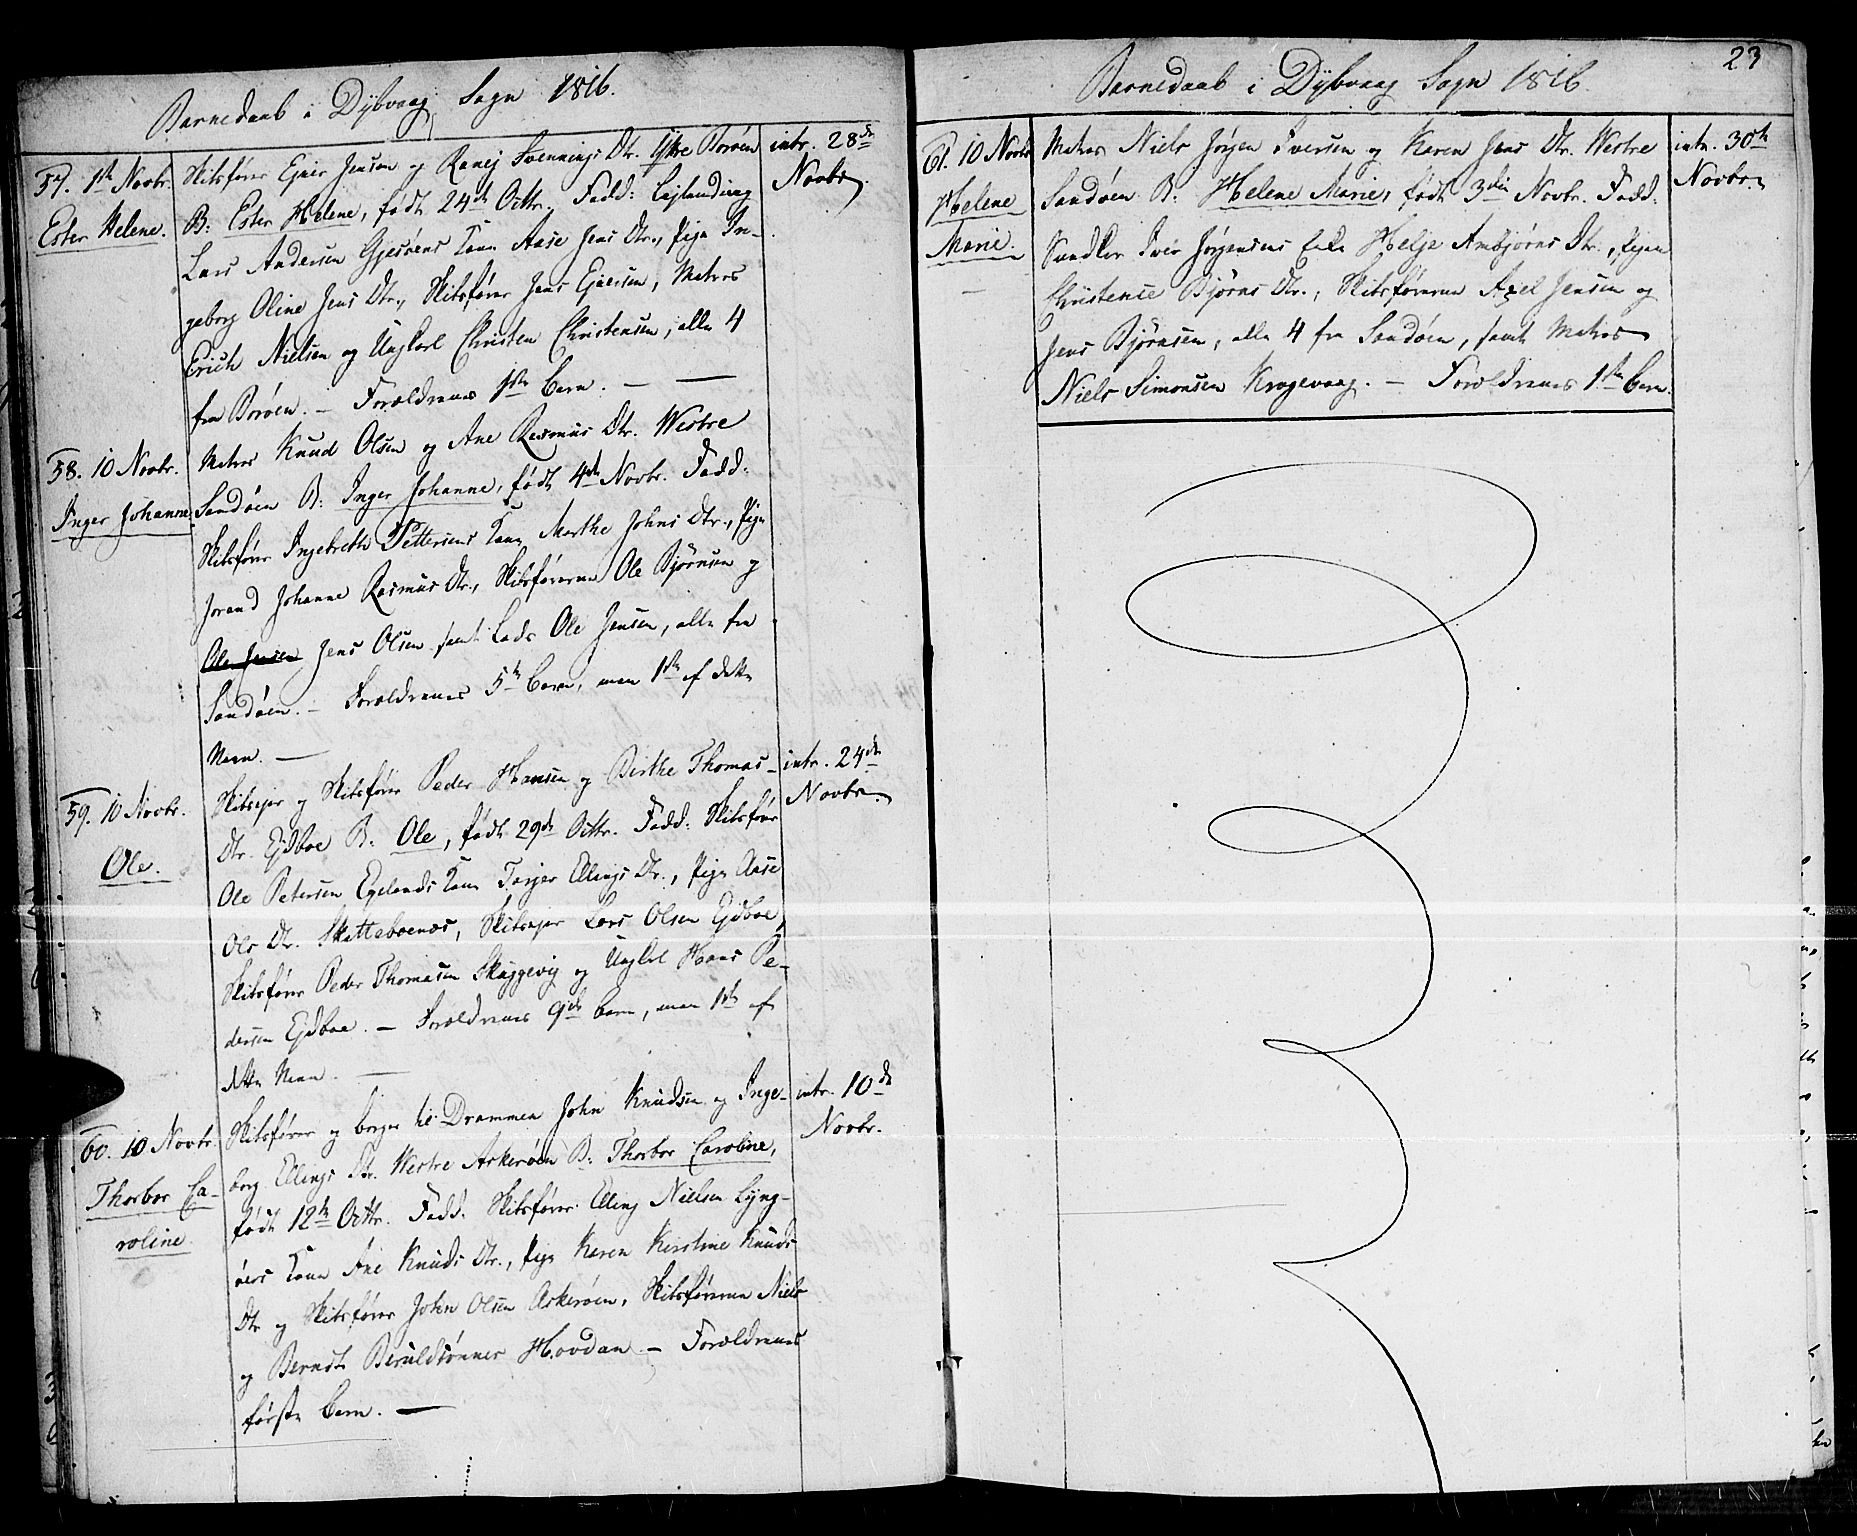 Barnedaab i Dybvaag Sogn 1816.
57. 1ste Novbr.
Ester Helene.
Skibsfører Ejner Jensen og Ranej Svennings Dtr. Ytre Borøen
B: Ester Helene, født 24de Octbr. Fadd: Lejlænding
Lars Andersen Gjesøens Kone Aase Jens Dtr., Pige In-
geborg Oline Jens Dtr., Skibsfører Jens Ejnersen, Matros
Erich Nielsen og Ungkarl Christen Christensen, alle 4
fra Borøen. – Forældrenes 1ste Barn. –
intr. 28de
Novbr.
58. 10 Novbr.
Inger Johanne.
Matros Knud Olsen og Ane Rasmus Dtr. Westre
Sandøen B: Inger Johanne, født 4de Novbr. Fadd:
Skibsfører Ingebreth Pettersens Kone Marthe Johns Dtr., Pige
Jorand Johanne Rasmus Dtr., Skibsførerne Ole Bjørnsen og
Ole Jensen Jens Olsen samt Lods Ole Jensen, alle fra
Sandøen. – Forældrenes 5te Barn, men 1ste af dette
Navn. –
59. 10 Novbr.
Ole.
Skibsejer og Skibsfører Peder Hansen og Birthe Thomas-
Dtr. Ejdboe B: Ole, født 29de Octbr. Fadd: Skibsfører
Ole Petersen Egelands Kone Torjer Ellings Dtr., Pige Aase
Ols Dtr. Skatteboenes, Skibsejer Lars Olsen Ejdboe,
Skibsfører Peder Thomasen Skuggevig og Ungkarl Hans Pe-
dersen Ejdboe. – Forældrenes 9de Barn, men 1ste af
dette Navn. –
intr. 24de
Novbr.
60. 10 Novbr.
Thorbor Ca-
roline.
Skibsfører og borger til Drammen John Knudsen og Inge-
borg Ellings Dtr. Westre Askerøen B: Thorbor Caroline,
født 12te Octbr. Fadd: Skibsfører Elling Nielsen Lyng-
øers Kone Ane Knuds Dtr., Pige Karen Kirstine Knuds
Dtr. og Skibsfører John Olsen Askerøen, Skibsførerne Niels
og Berndt Beruldsønner Hovdan – Forældrenes
første Barn. –
intr. 10de
Novbr.
23
Barnedaab i Dybvaag Sogn 1816.
61. 10 Novbr.
Helene
Marie.
Matros Niels Jørgen Iversen og Karen Jens Dtr. Westre
Sandøen B: Helene Marie, født 3die Novbr. Fadd:
Iver Jørgensens Enke Helje Ambjørns Dtr., Pigen
Christense Bjørns Dtr., Skibsførerne Axel Jensen og
Jens Bjørnsen, alle 4 fra Sandøen, samt Matros
Niels Simonsen Krogevaag. – Forældrenes 1ste Barn.
intr. 30te
Novbr.